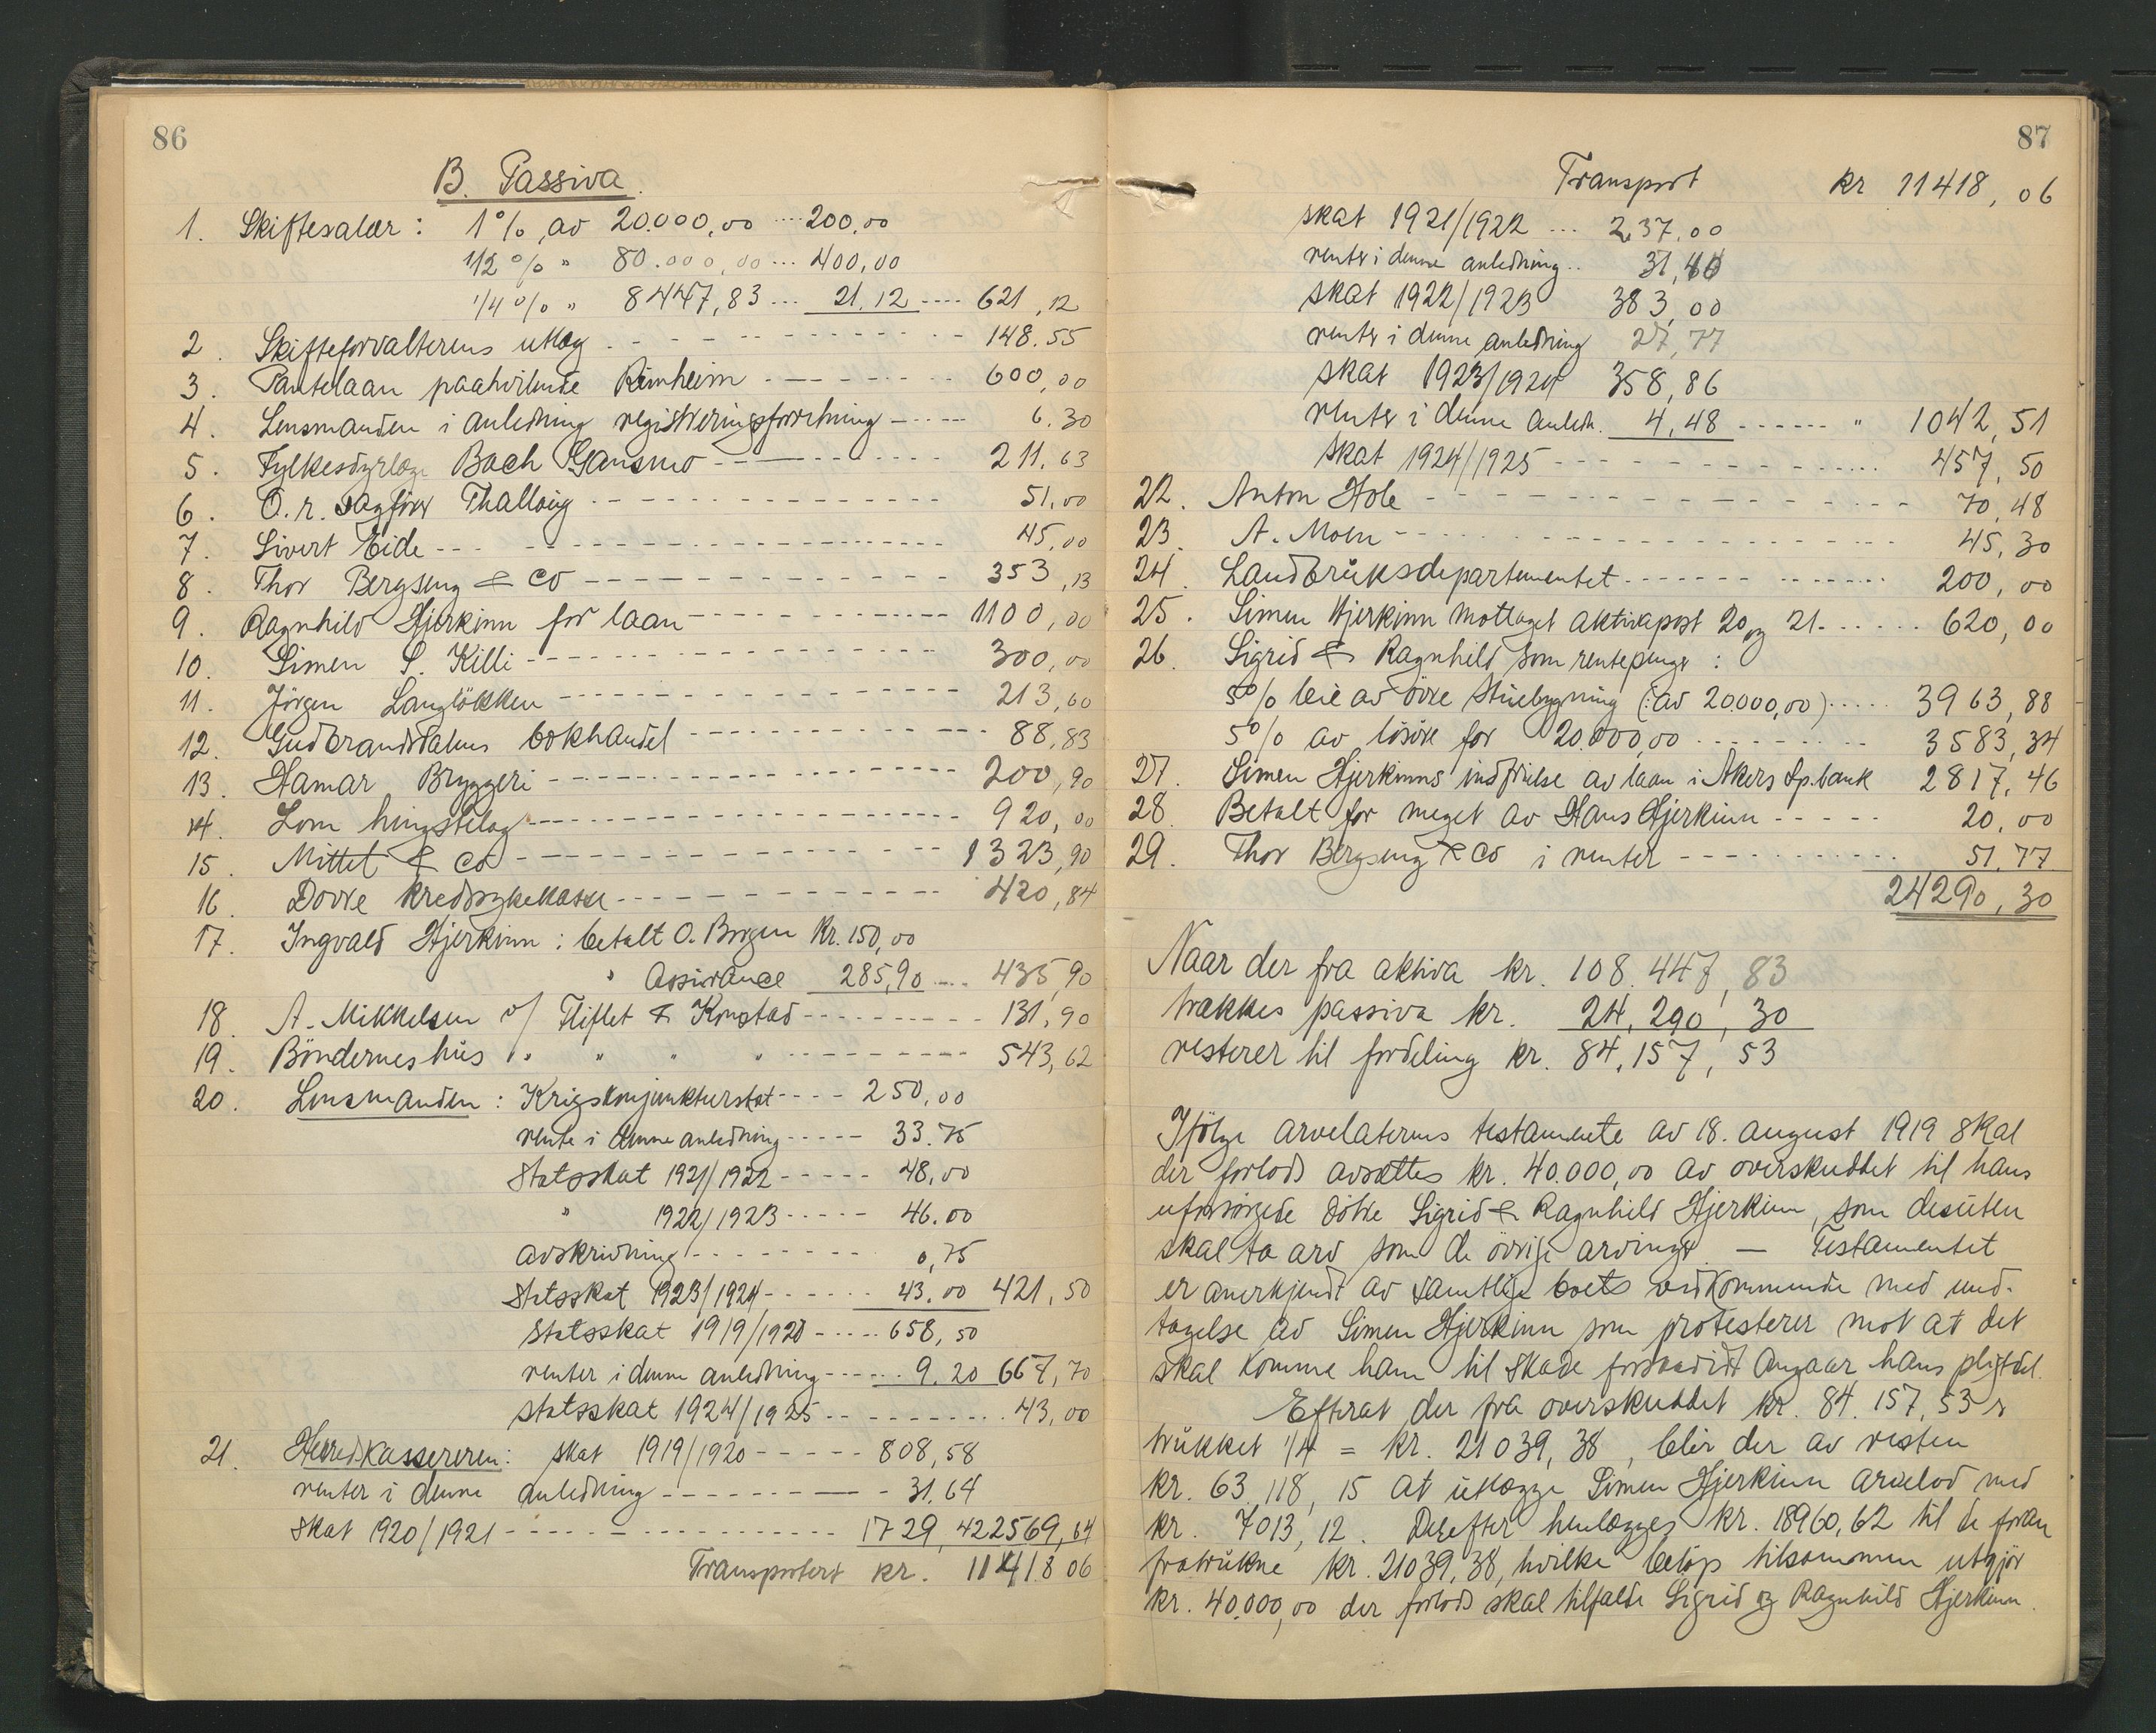 86
B. Passiva.
1. Skiftesalær: 1% av 20.000,00 ... 200,00
1/2% " 80.000,00 ... 400,00
1/4% " 8447,83 ... 21.12 ---- 621,12
2. Skifteforvalterens utlæg - - - 148.55
3. Pantelaan paahvilende Rimheim - - - 600,00
4. Lensmanden i anledning registreringsforretning - - - 6.30
5. Fylkesdyrlæge Bach Gansmo - - - 211.63
6. O.r. sagfører Thallaug - - - 51.00
7. Sivert Eide - - - 45,00
8. Thor Bergseng & Co - - - 353,13
9. Ragnhild Hjerkinn for laan - - - 1100,00
10. Simen S. Killi - - - 300,00
11. Jörgen Langlökken - - - 213,60
12. Gudbrandsdalens bokhandel - - - 88,83
13. Hamar Bryggeri - - - 200,90
14. Lom hingstelag - - - 920,00
15. Mittet & Co - - - 1323,90
16. Dovre kredssykekasse - - - 420,84
17. Ingvald Hjerkinn: betalt O. Borgen Kr. 150,00
" Assurance 285,90 ... 435,90
18. A. Mikkelsen v/ Fliflet & Kongstad - - - 131,90
19. Böndernes hus " " " " - - - 543,62
20. Lensmanden: Krigskonjunkturskat - - - - 250,00
rente i denne anledning - - - 33.75
Statsskat 1921/1922 - - - 48,00
" 1922/1923 - - - 46.00
avskrivning - - - 0,75
Statsskat 1923/1924 - - - 43.00 421,50
Statsskat 1919/1920 - - - 658,50
renter i denne anledning - - - 9.20 667,70
statsskat 1924/1925 - - - 43,00
21. Herredskassereren: skat 1919/1920 - - - 808,58
renter i denne anledning - - - 31.64
Skat 1920/1921 - - - 1729,42 2569,64
Transportert kr. 11418 06
87
Transport kr 11418,06
skat 1921/1922 ... 237.00
renter i denne anledning .. 31,40
skat 1922/1923 383,00
renter i denne anledning 27,77
skat 1923/1924 358,86
renter i denne anledn. 4,48 - - - " 1042,51
skat 1924/1925 - - - 457,50
22. Anton Hole - - - 70,48
23. A. Moen - - - 45,30
24. Landbruksdepartementet - - - 200,00
25. Simen Hjerkinn mottaget aktivapost 20 og 21 - - - 620,00
26. Sigrid & Ragnhild som rentepenger:
5% leie av övre Stuebygning (: av 20.000,00) ..... 3963,88
5% av lösöre for 20.000,00 - - - 3583,34
27. Simen Hjerkinns indfrielse av laan i Akers Sp.bank 2817,46
28. Betalt for meget av Hans Hjerkinn - - - 20,00
29. Thor Bergseng & Co i renter - - - 51,77
24290,30
Naar der fra aktiva kr. 108.447,83
trækkes passiva kr. 24.290,30
resterer til fordeling kr. 84.157,53
Ifölge arvelaterens testamente av 18. august 1919 skal
der forlods avsættes kr. 40.000,00 av overskuddet til hans
uforsörgede dötre Sigrid & Ragnhild Hjerkinn, som desuten
skal ta arv som de övrige arvinger. — Testamentet
er anerkjendt av samtlige boets vedkommende med und-
tagelse av Simen Hjerkinn som protesterer mot at det
skal komme ham til skade forsaavidt angaar hans pligtdel.
Efterat der fra overskuddet kr. 84.157,53 er
trukket 1/4 = kr. 21039,38, blir der av resten
kr. 63.118,15 at utlægge Simen Hjerkinn arvelod med
kr. 7013,12. Derefter henlægges kr. 18960,62 til de foran
fratrukne kr. 21039,38, hvilke belöp tilsammen utgjör
kr. 40.000,00 der forlods skal tilfalde Sigrid og Ragnhild Hjerkinn.